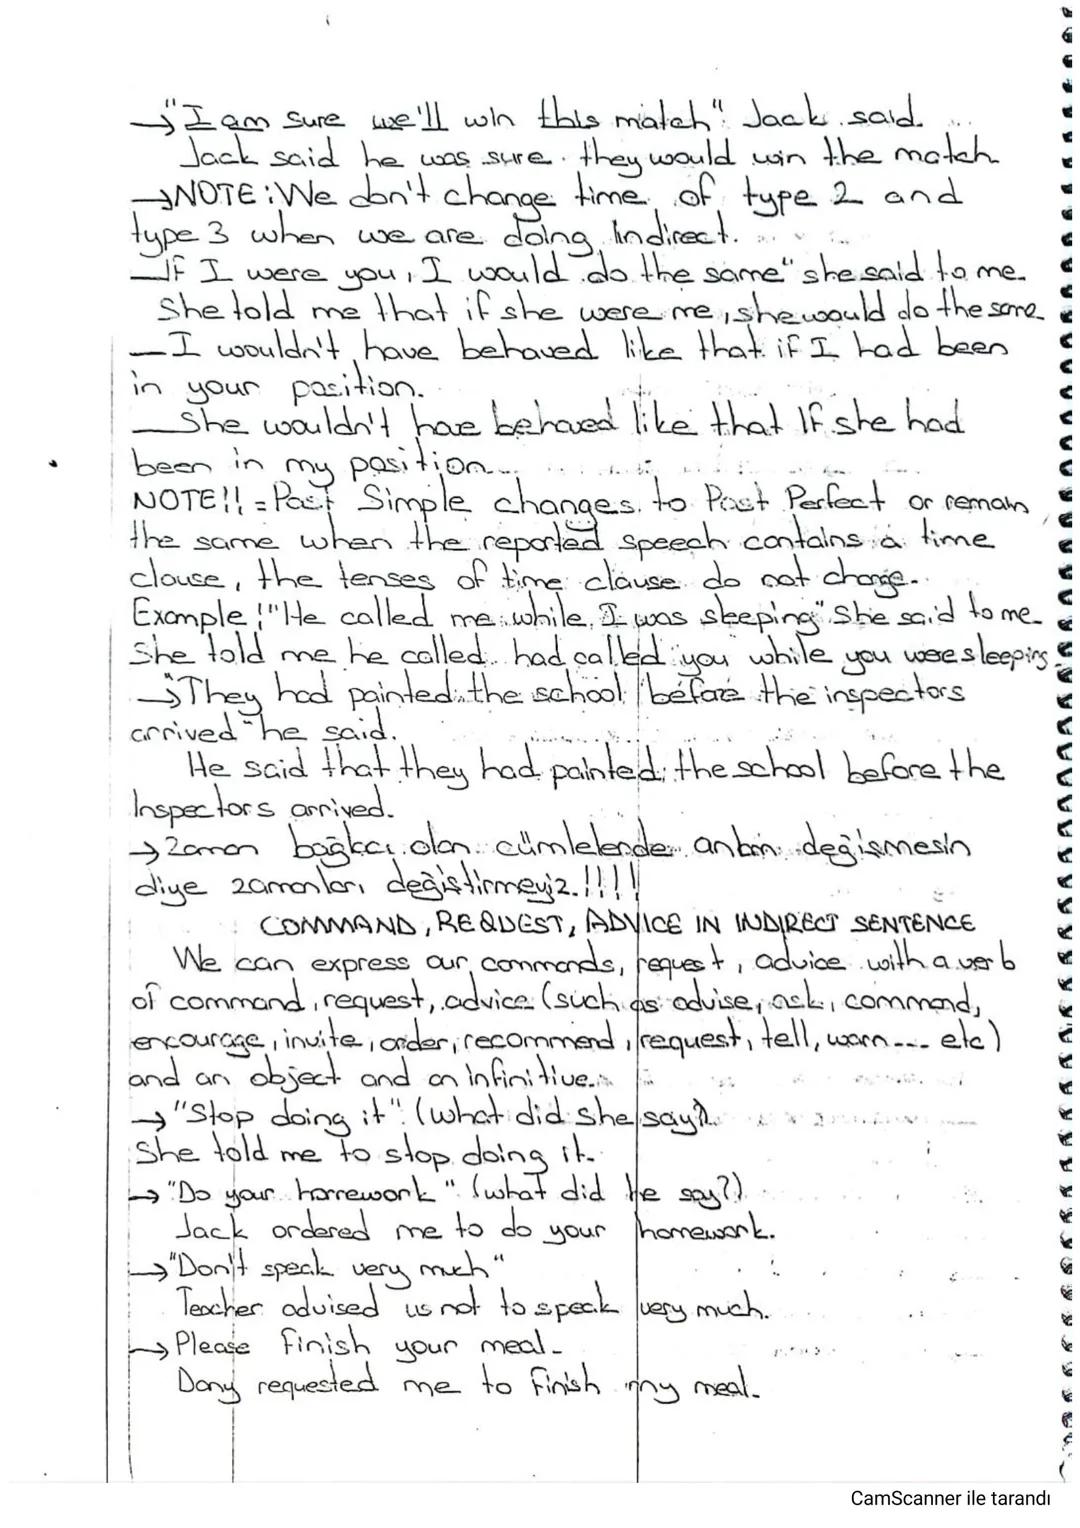 →"I am sure we'll win this match". Jack said.
Jack said he was sure they would win the match
→NOTE: We don't change time of type 2 and
type 3 when we are doing indirect.
—If I were you, I would do the same" she said to me.
She told me that if she were me, she would do the same
—I wouldn't have behaved like that if I had been
in your position.
—She wouldn't have behaved like that If she had
been in my position.
NOTE!! = Past Simple changes to Past Perfect or remain
the same when the reported speech contains a time
clause, the tenses of time clause do not change.
Example: "He called me while I was sleeping" She said to me.
She told me he called.. had called you while you were sleeping
→"They had painted the school before the inspectors
arrived" he said.
He said that they had painted the school before the
Inspectors arrived.
→Zaman bağlacı olan cümlelerde anlam değişmesin
diye zamanları değiştirmeyiz.!!!!
COMMAND, REQUEST, ADVICE IN INDIRECT SENTENCE
We can express our commands, request, advice with a verb
of command, request, advice (such as advise, ask, command,
encourage, invite, order, recommend, request, tell, warn.... etc)
and an object and an infinitive.
→"Stop doing it". (what did she say?)
She told me to stop doing it.
→"Do your homework". (what did he say?)
Jack ordered me to do your homework.
→"Don't speak very much"
Teacher advised us not to speak very much.
→Please finish your meal.
Dany requested me to finish my meal.
CamScanner ile tarandı